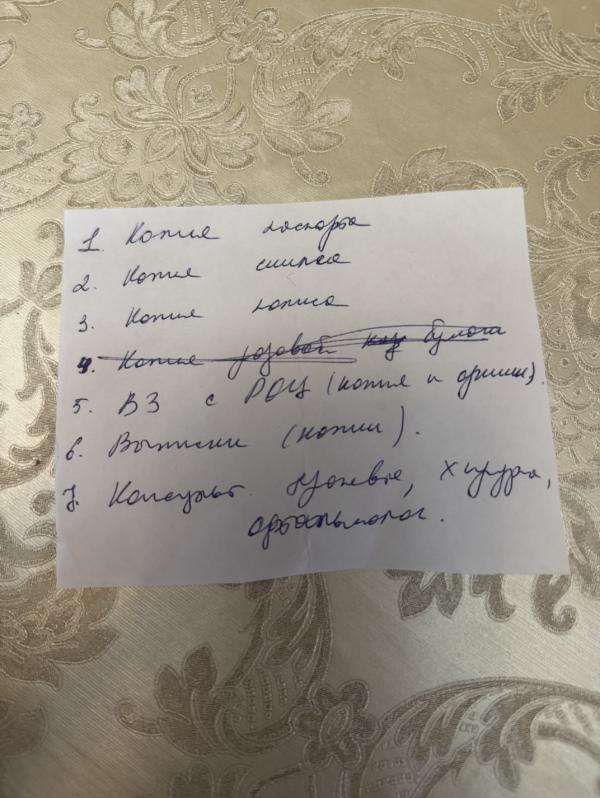 1. Копия паспорта
2. Копия снилса
3. Копия полиса
4. Копия розовой бумаги
5. ВЗ с РОЦ (копия и оригин).
6. Выписки (копии).
7. Консульт. хирурга,
офтальмолог.